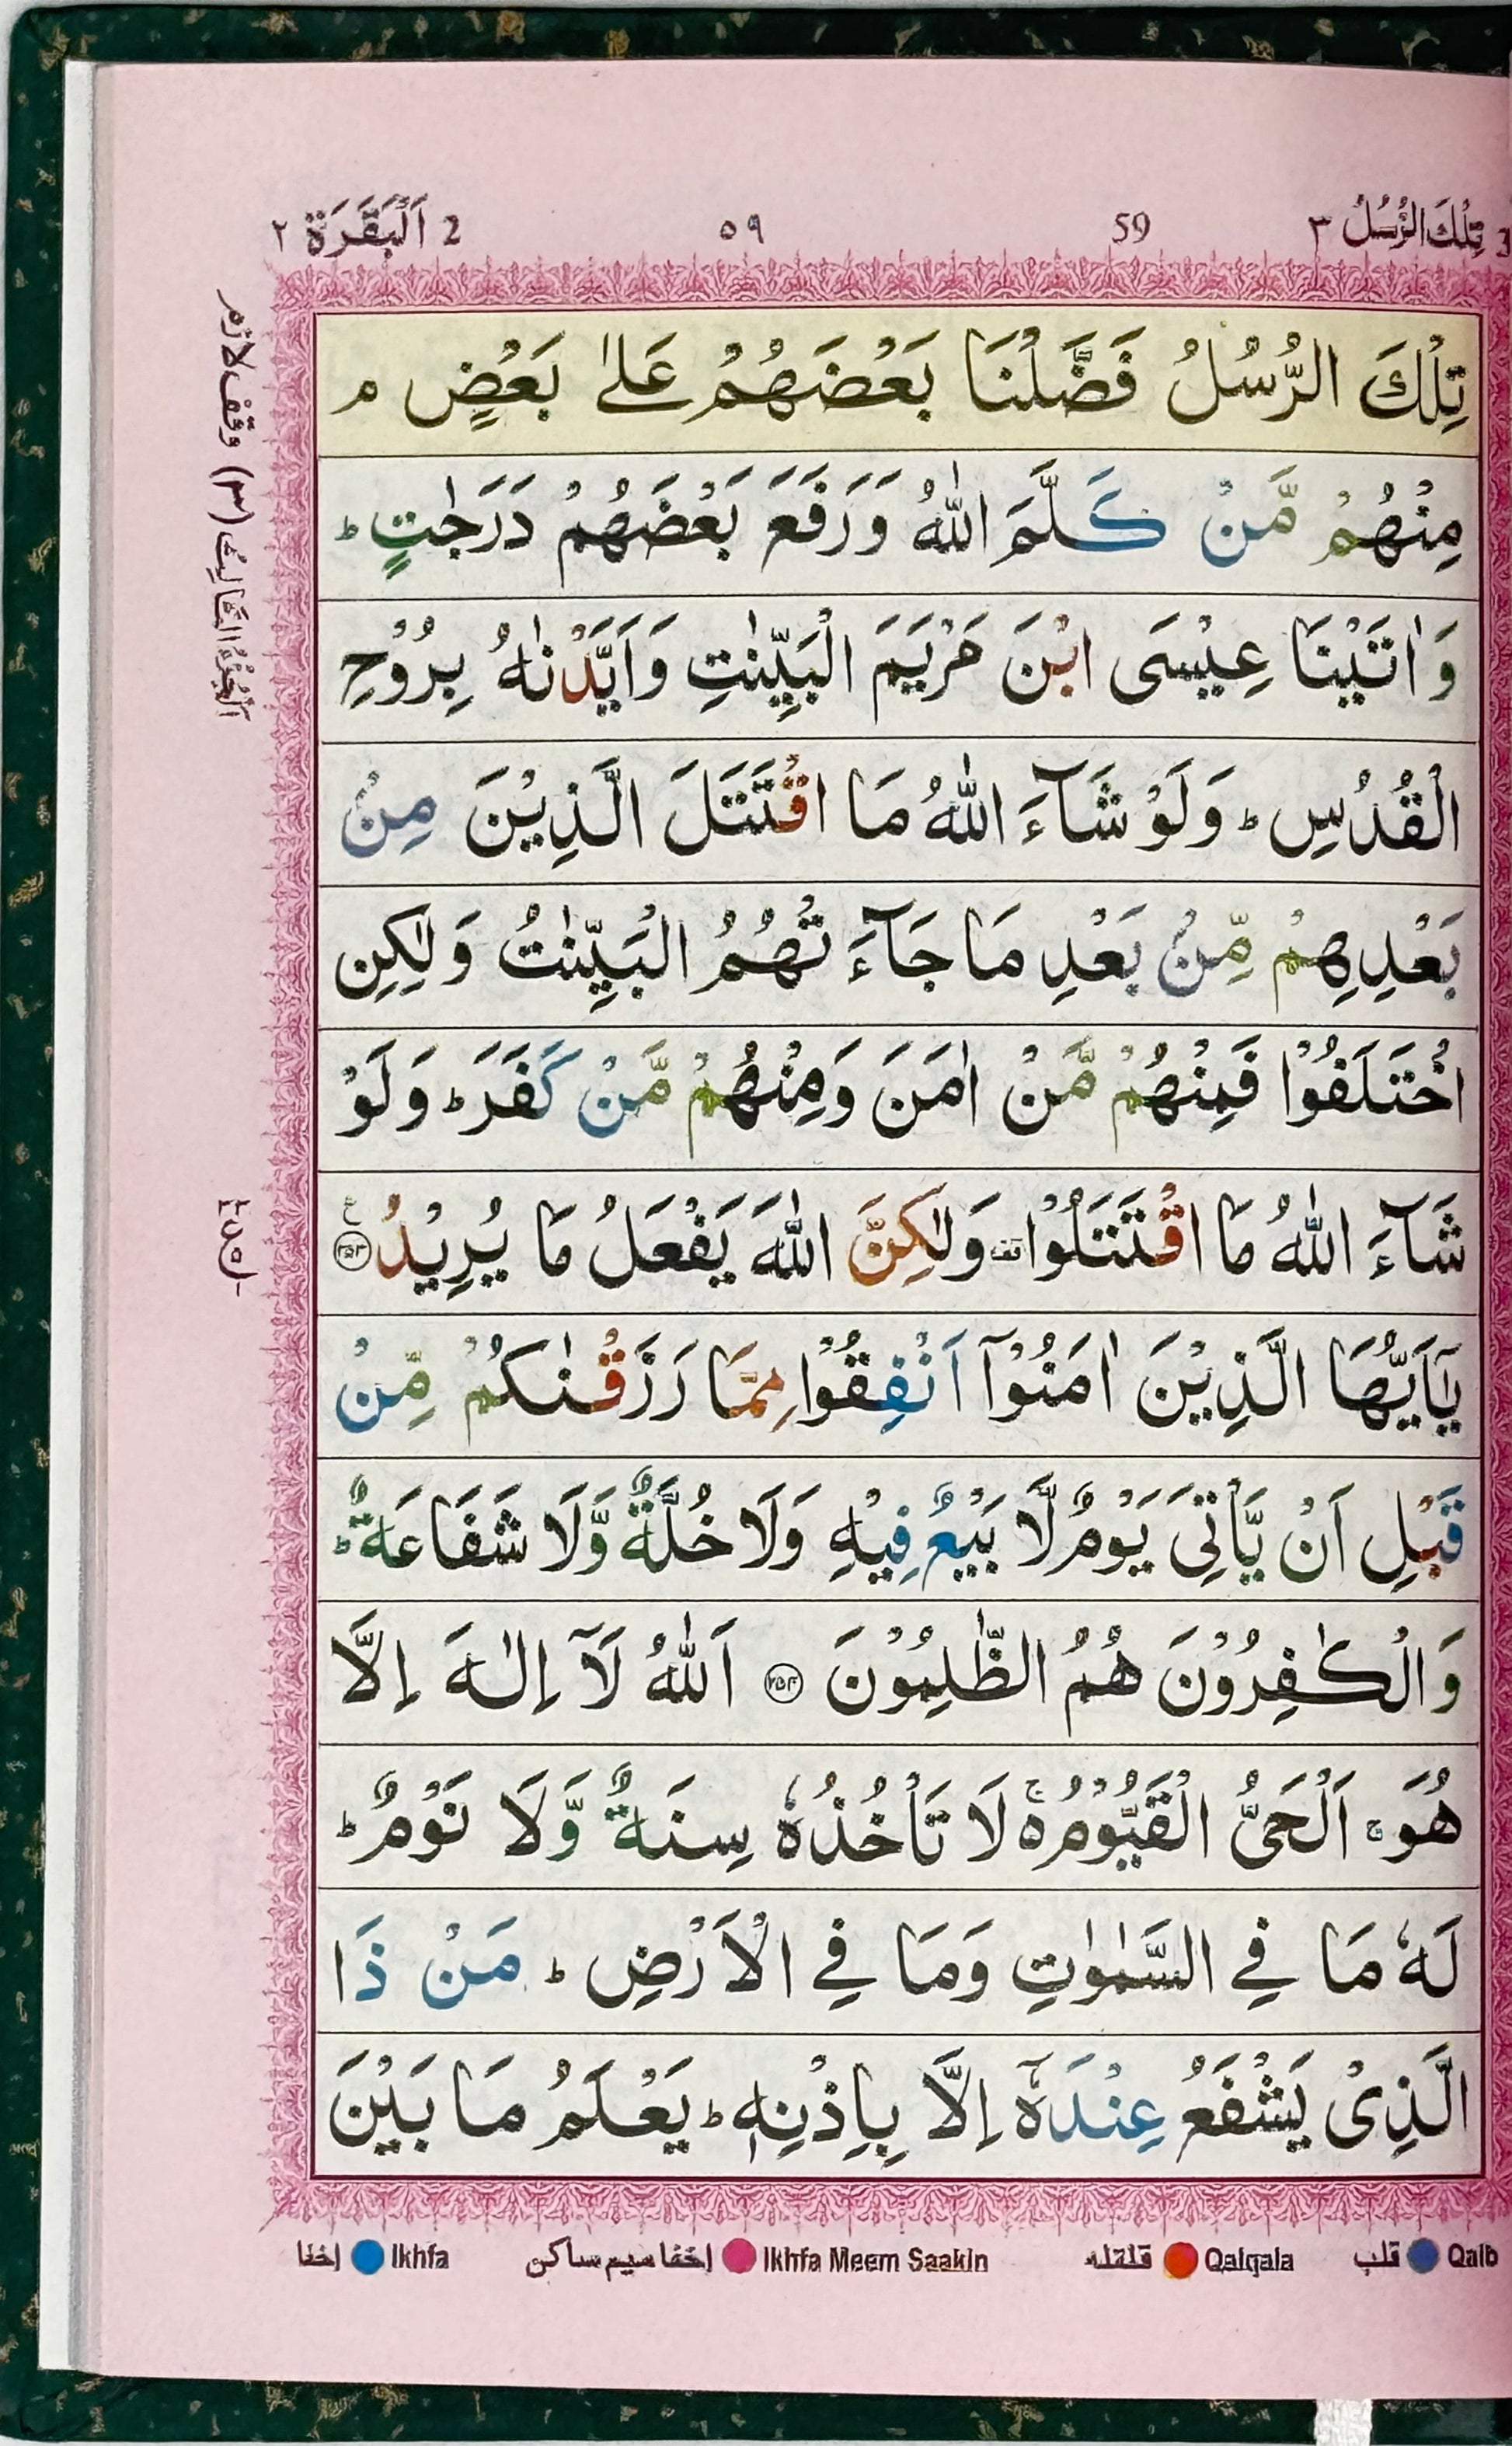 3 تِلْكَ الرُّسُلُ ٣ 59 ٥٩ 2 اَلْبَقَرَة ٢
تِلْكَ الرُّسُلُ فَضَّلْنَا بَعْضَهُمْ عَلٰى بَعْضٍ ۘ
مِنْهُمْ مَّنْ كَلَّمَ اللّٰهُ وَرَفَعَ بَعْضَهُمْ دَرَجٰتٍ ؕ
وَاٰتَيْنَا عِيْسَى ابْنَ مَرْيَمَ الْبَيِّنٰتِ وَاَيَّدْنٰهُ بِرُوْحِ
الْقُدُسِ ؕ وَلَوْ شَآءَ اللّٰهُ مَا اقْتَتَلَ الَّذِيْنَ مِنْۢ
بَعْدِهِمْ مِّنْۢ بَعْدِ مَا جَآءَتْهُمُ الْبَيِّنٰتُ وَلٰكِنِ
اخْتَلَفُوْا فَمِنْهُمْ مَّنْ اٰمَنَ وَمِنْهُمْ مَّنْ كَفَرَ ؕ وَلَوْ
شَآءَ اللّٰهُ مَا اقْتَتَلُوْا وَلٰكِنَّ اللّٰهَ يَفْعَلُ مَا يُرِيْدُ ﴿٢٥٣﴾
يٰۤاَيُّهَا الَّذِيْنَ اٰمَنُوْۤا اَنْفِقُوْا مِمَّا رَزَقْنٰكُمْ مِّنْ
قَبْلِ اَنْ يَّاْتِىَ يَوْمٌ لَّا بَيْعٌ فِيْهِ وَلَا خُلَّةٌ وَّلَا شَفَاعَةٌ ؕ
وَالْكٰفِرُوْنَ هُمُ الظّٰلِمُوْنَ ﴿٢٥٤﴾ اَللّٰهُ لَاۤ اِلٰهَ اِلَّا
هُوَ ۚ اَلْحَىُّ الْقَيُّوْمُ ۚ لَا تَاْخُذُهٗ سِنَةٌ وَّلَا نَوْمٌ ؕ
لَهٗ مَا فِى السَّمٰوٰتِ وَمَا فِى الْاَرْضِ ؕ مَنْ ذَا
الَّذِىْ يَشْفَعُ عِنْدَهٗۤ اِلَّا بِاِذْنِهٖ ؕ يَعْلَمُ مَا بَيْنَ
اَلْجُزْءُ الثَّالِثُ (٣) وقف لازم
Qalb قلب Qalqala قلقله Ikhfa Meem Saakin اخفا ميم ساكن Ikhfa اخفا